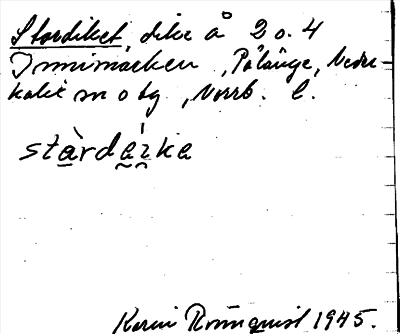 Stordiket, dike å 2 o. 4
Innimarken, Pålänge, Neder-
kalix sn o tg, Norrb. l.
stàrdäıka
Karin Rönnquist 1945.